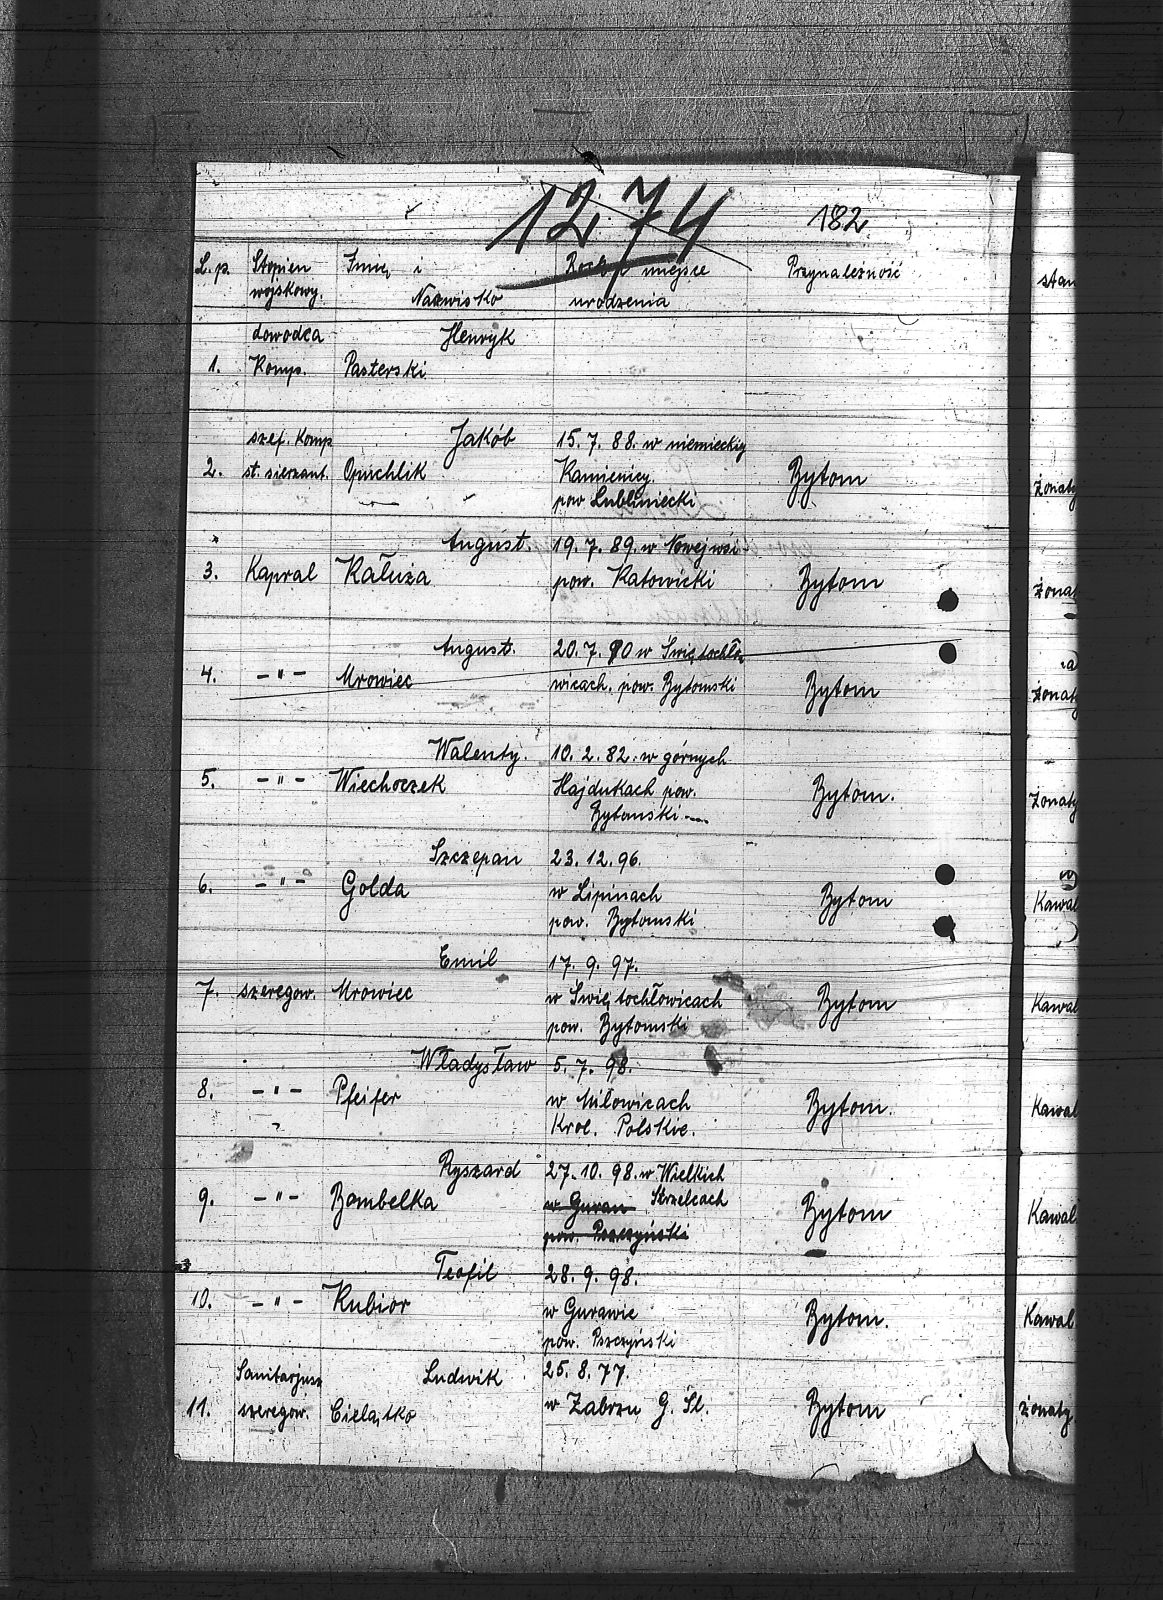 1274
182
L.p. Stopien Imię i Rok i miejsce Przynależność stan
wojskowy. Nazwisko urodzenia
dowodca Henryk
1. Komp. Pasterski
szef. Komp Jakób 15.7.88. w niemieckiej
2. st. sierzant. Opuchlik Kamienicy. Bytom żonaty
pow Lubliniecki
August. 19.7.89. w Nowejwsi
3. Kapral Kałuża pow. Katowicki Bytom żonat
August. 20.7.90 w Święto­chło
4. -"- Mrowiec wicach. pow. Bytomski Bytom żonaty
Walenty. 10.2.82. w górnych
5. -"- Wiechoczek Hajdukach pow. Bytom. żonaty
Bytomski
Szczepan 23.12.96.
6. -"- Golda w Lipinach Bytom Kawal
pow. Bytomski
Emil 17.9.97.
7. szeregow. Mrowiec w Świętochłowicach Bytom Kawal
pow. Bytomski
Władysław 5.7.98.
8. -"- Pfeifer w Miłowicach Bytom. Kawal
Krol. Polskie.
Ryszard 27.10.98. w Wielkich
9. -"- Bombelka w Guran Strzelcach Bytom Kawal
pow. Pszczyński
Teofil 28.9.98.
10. -"- Kubior w Gurawie Bytom. Kawal
pow. Pszczyński
Sanitarjusz Ludwik 25.8.77.
11. szeregow. Cielątko w Zabrzu G. Śl. Bytom żonaty